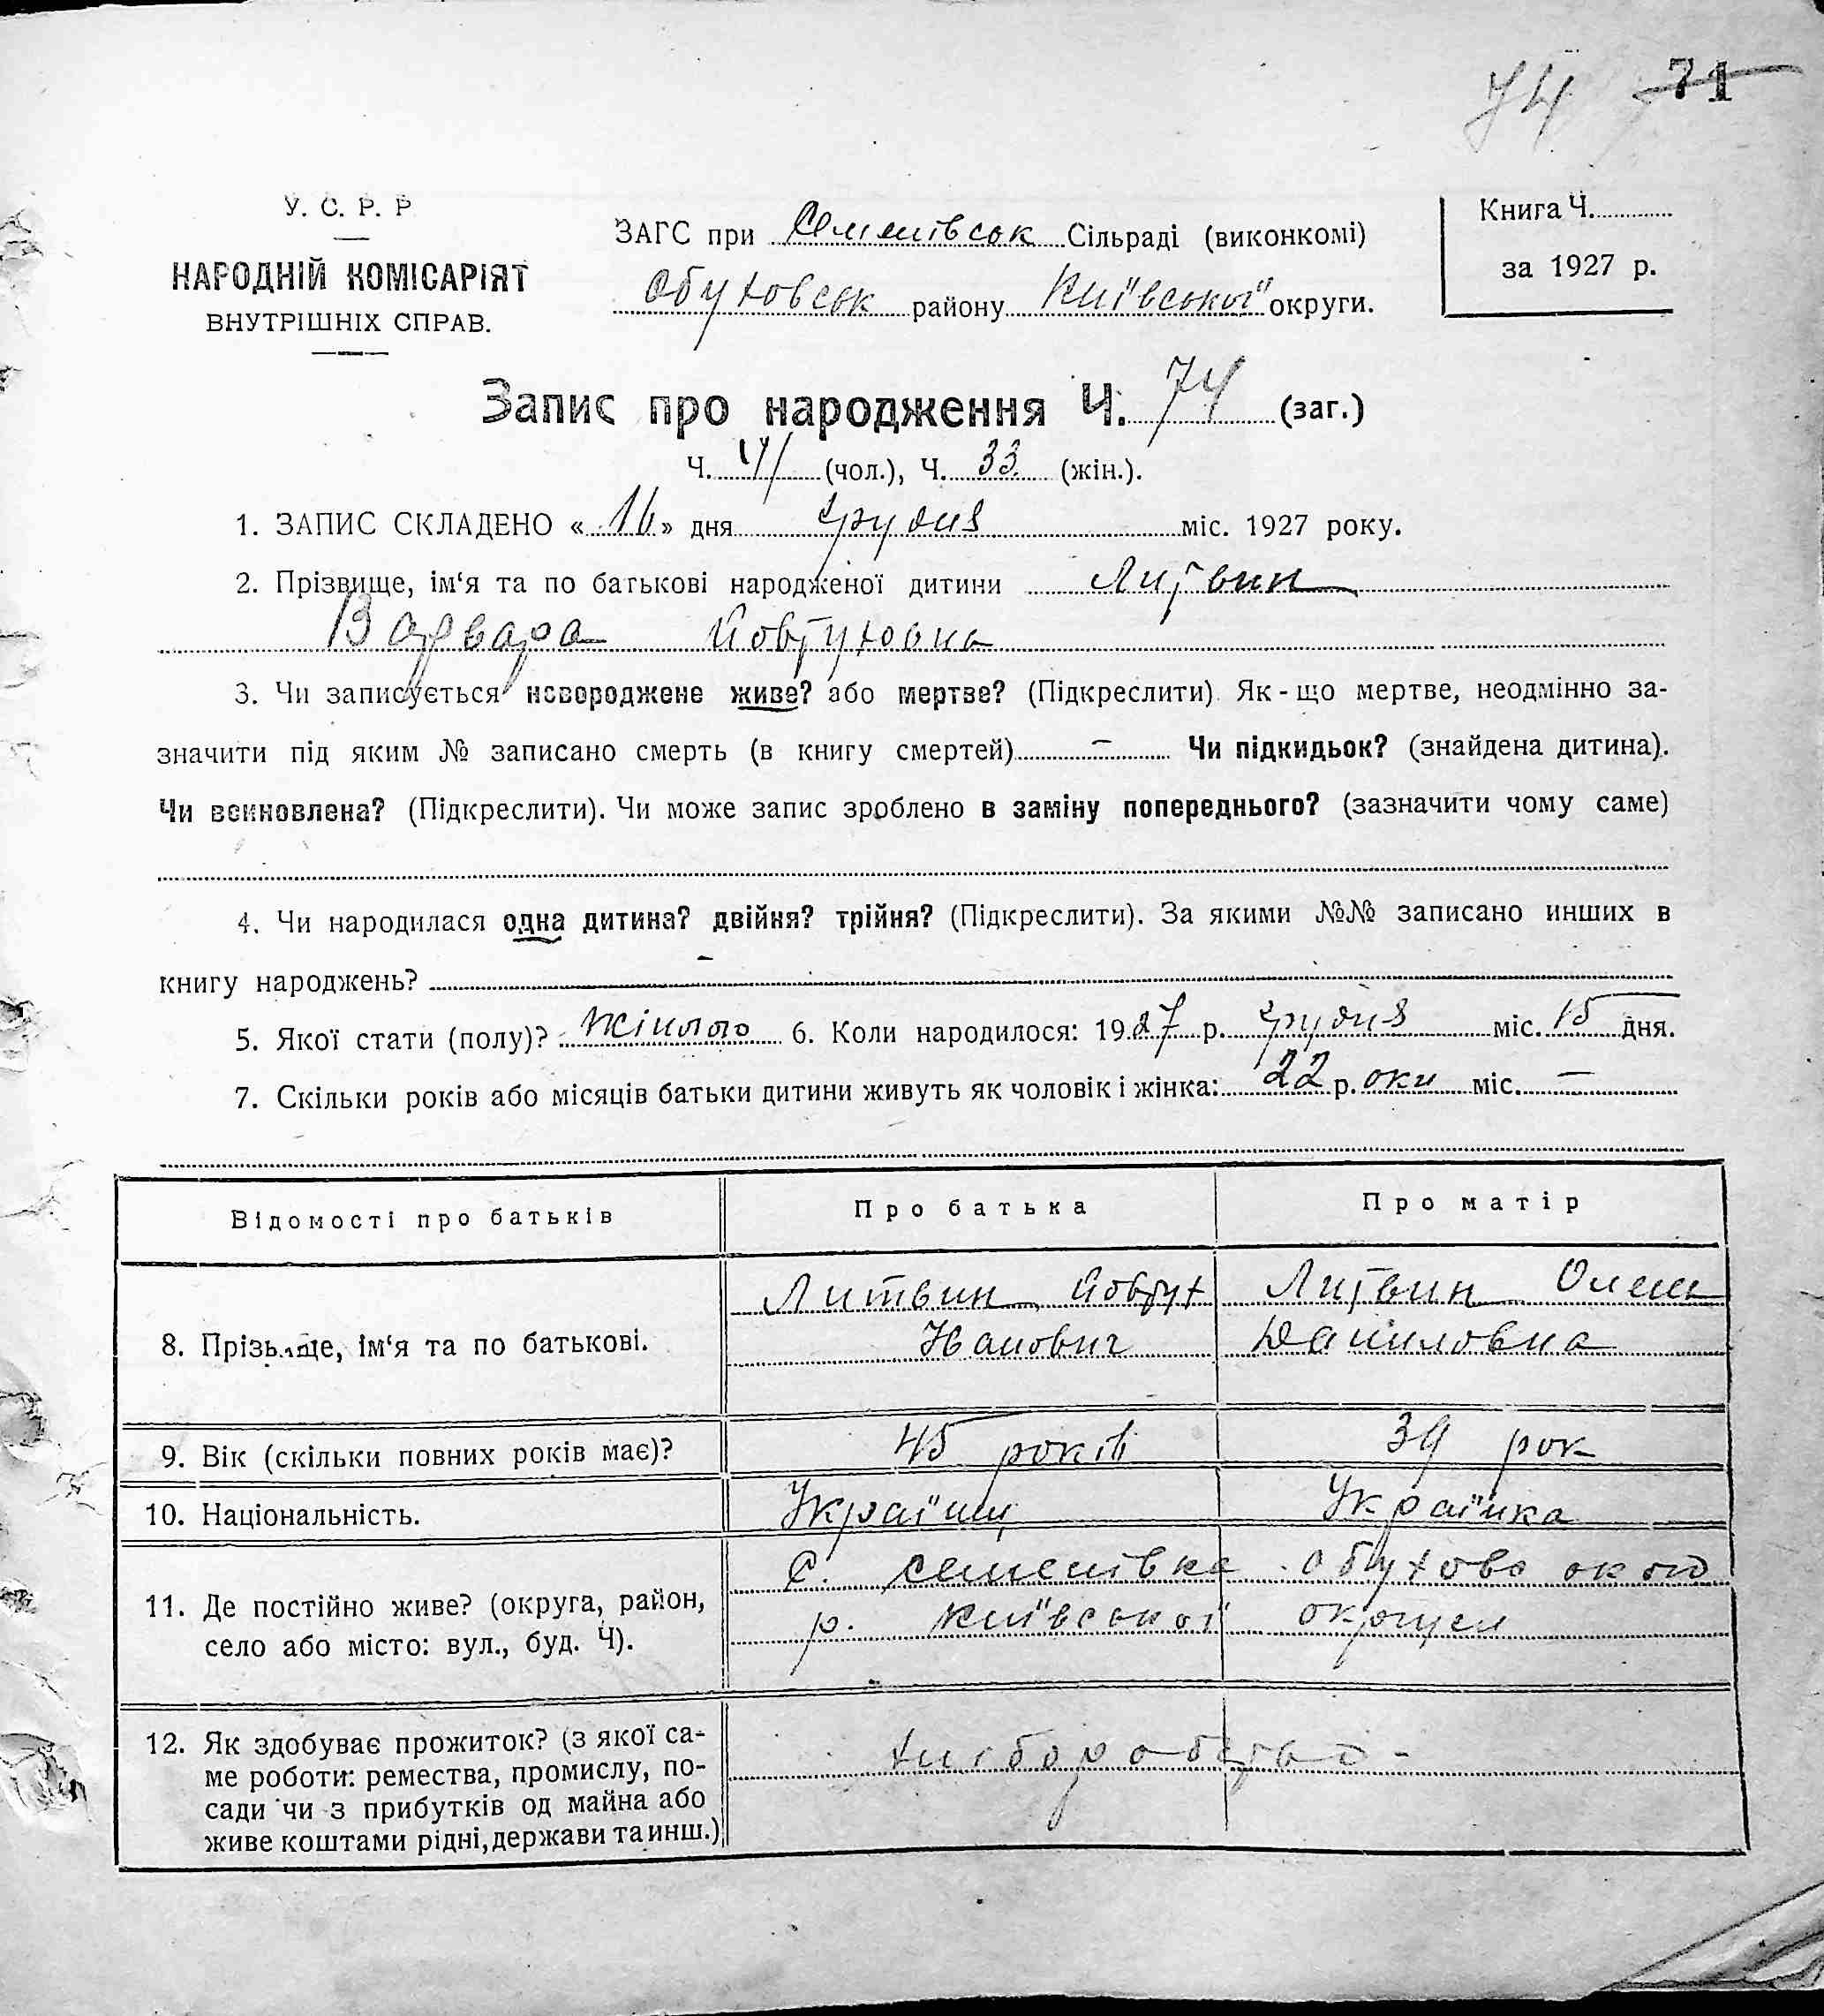 74 71
У. С. Р. Р
НАРОДНІЙ КОМІСАРІЯТ
ВНУТРІШНІХ СПРАВ.
ЗАГС при Семенівськ Сільраді (виконкомі)
Обуховськ району Київської округи.
Книга Ч.
за 1927 р.
Запис про народження Ч. 74 (заг.)
Ч. 41 (чол.), Ч. 33 (жін.).
1. ЗАПИС СКЛАДЕНО « 16 » дня грудня міс. 1927 року.
2. Прізвище, ім‘я та по батькові народженої дитини Литвин
Варвара Йовтуховна
3. Чи записується новороджене живе? або мертве? (Підкреслити). Як-що мертве, неодмінно за-
значити під яким № записано смерть (в книгу смертей) — Чи підкидьок? (знайдена дитина).
Чи всиновлена? (Підкреслити). Чи може запис зроблено в заміну попереднього? (зазначити чому саме)
4. Чи народилася одна дитина? двійня? трійня? (Підкреслити). За якими №№ записано инших в
книгу народжень? —
5. Якої стати (полу)? жіночо 6. Коли народилося: 1927 р. грудня міс. 15 дня.
7. Скільки років або місяців батьки дитини живуть як чоловік і жінка: 22 р. оки міс. —
Відомості про батьків Про батька Про матір
8. Прізвище, ім‘я та по батькові.
Литвин Йовтух
Іванович
Литвин Олена
Даниловна
9. Вік (скільки повних років має)? 45 років 39 рок
10. Національність. Українц Українка
11. Де постійно живе? (округа, район,
село або місто: вул., буд. Ч).
С. Семенівка Обухово
р. Київської округи
12. Як здобуває прожиток? (з якої са-
ме роботи: ремества, промислу, по-
сади чи з прибутків од майна або
живе коштами рідні, держави та инш.)
хліборобство -